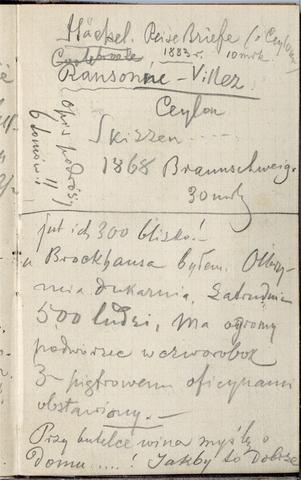 Häckel. Reise Briefe (o Ceylonie)
1883 r. 10 mrk.
Ransonne-Villez
Ceylon
Skizzen
1868 Braunschweig.
30 mrk
Opis podróży
6 tomów!!
już ich 300 blisko!
u Brockhausa byłem. Olbrzy-
mia drukarnia, Zatrudnia
500 ludzi, Ma ogromny
podwórzec w czworobok
3-piętrowemi oficynami
obstawiony.—
Przy butelce wina myślę o
Domu.....! Jakby to Dobrze